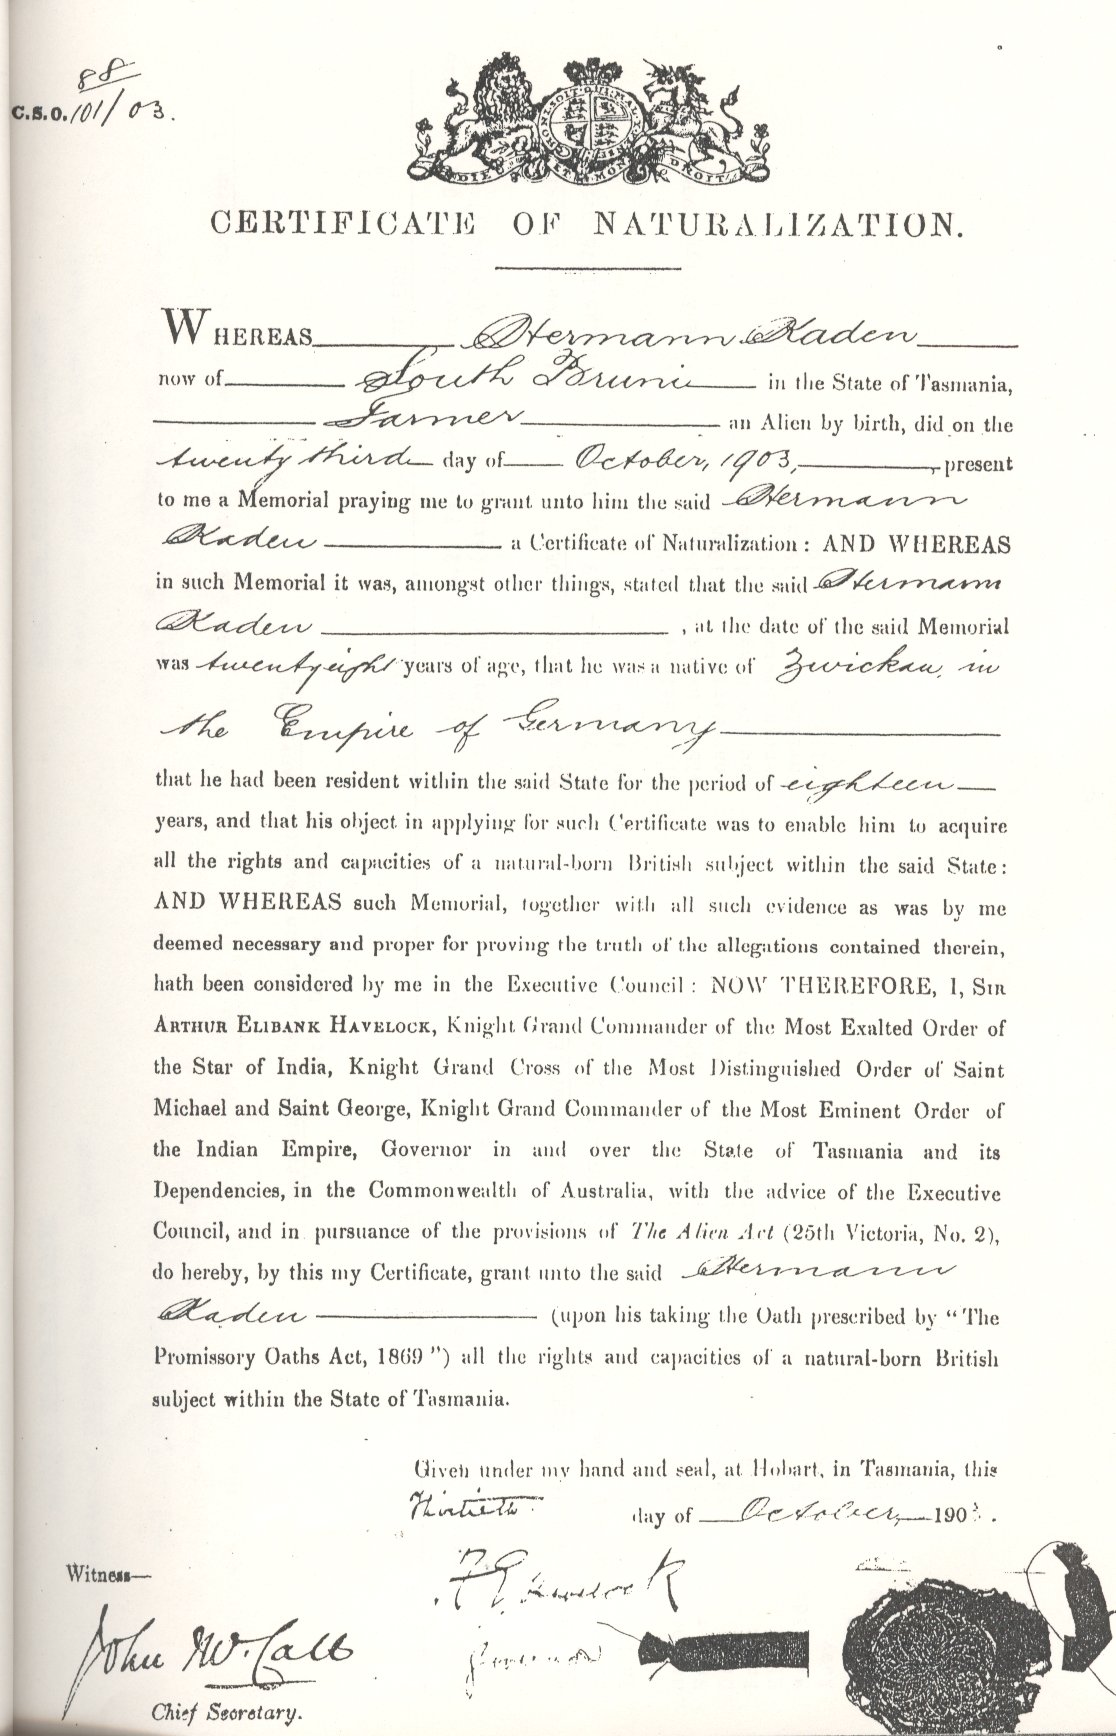 88
C.S.O. 101/03.
HONI SOIT QUI MAL Y
DIEU ET MON DROIT
CERTIFICATE OF NATURALIZATION.
WHEREAS Hermann Kaden
now of South Bruni in the State of Tasmania,
Farmer an Alien by birth, did on the
twenty third day of October, 1903, present
to me a Memorial praying me to grant unto him the said Hermann
Kaden a Certificate of Naturalization: AND WHEREAS
in such Memorial it was, amongst other things, stated that the said Hermann
Kaden, at the date of the said Memorial
was twenty eight years of age, that he was a native of Zwickau, in
the Empire of Germany
that he had been resident within the said State for the period of eighteen
years, and that his object in applying for such Certificate was to enable him to acquire
all the rights and capacities of a natural-born British subject within the said State:
AND WHEREAS such Memorial, together with all such evidence as was by me
deemed necessary and proper for proving the truth of the allegations contained therein,
hath been considered by me in the Executive Council: NOW THEREFORE, I, SIR
ARTHUR ELIBANK HAVELOCK, Knight Grand Commander of the Most Exalted Order of
the Star of India, Knight Grand Cross of the Most Distinguished Order of Saint
Michael and Saint George, Knight Grand Commander of the Most Eminent Order of
the Indian Empire, Governor in and over the State of Tasmania and its
Dependencies, in the Commonwealth of Australia, with the advice of the Executive
Council, and in pursuance of the provisions of The Alien Act (25th Victoria, No. 2),
do hereby, by this my Certificate, grant unto the said Hermann
Kaden (upon his taking the Oath prescribed by "The
Promissory Oaths Act, 1869") all the rights and capacities of a natural-born British
subject within the State of Tasmania.
Given under my hand and seal, at Hobart, in Tasmania, this
Thirtieth day of October, 1903.
Witness—
Havelock
Governor
John McCall
Chief Secretary.